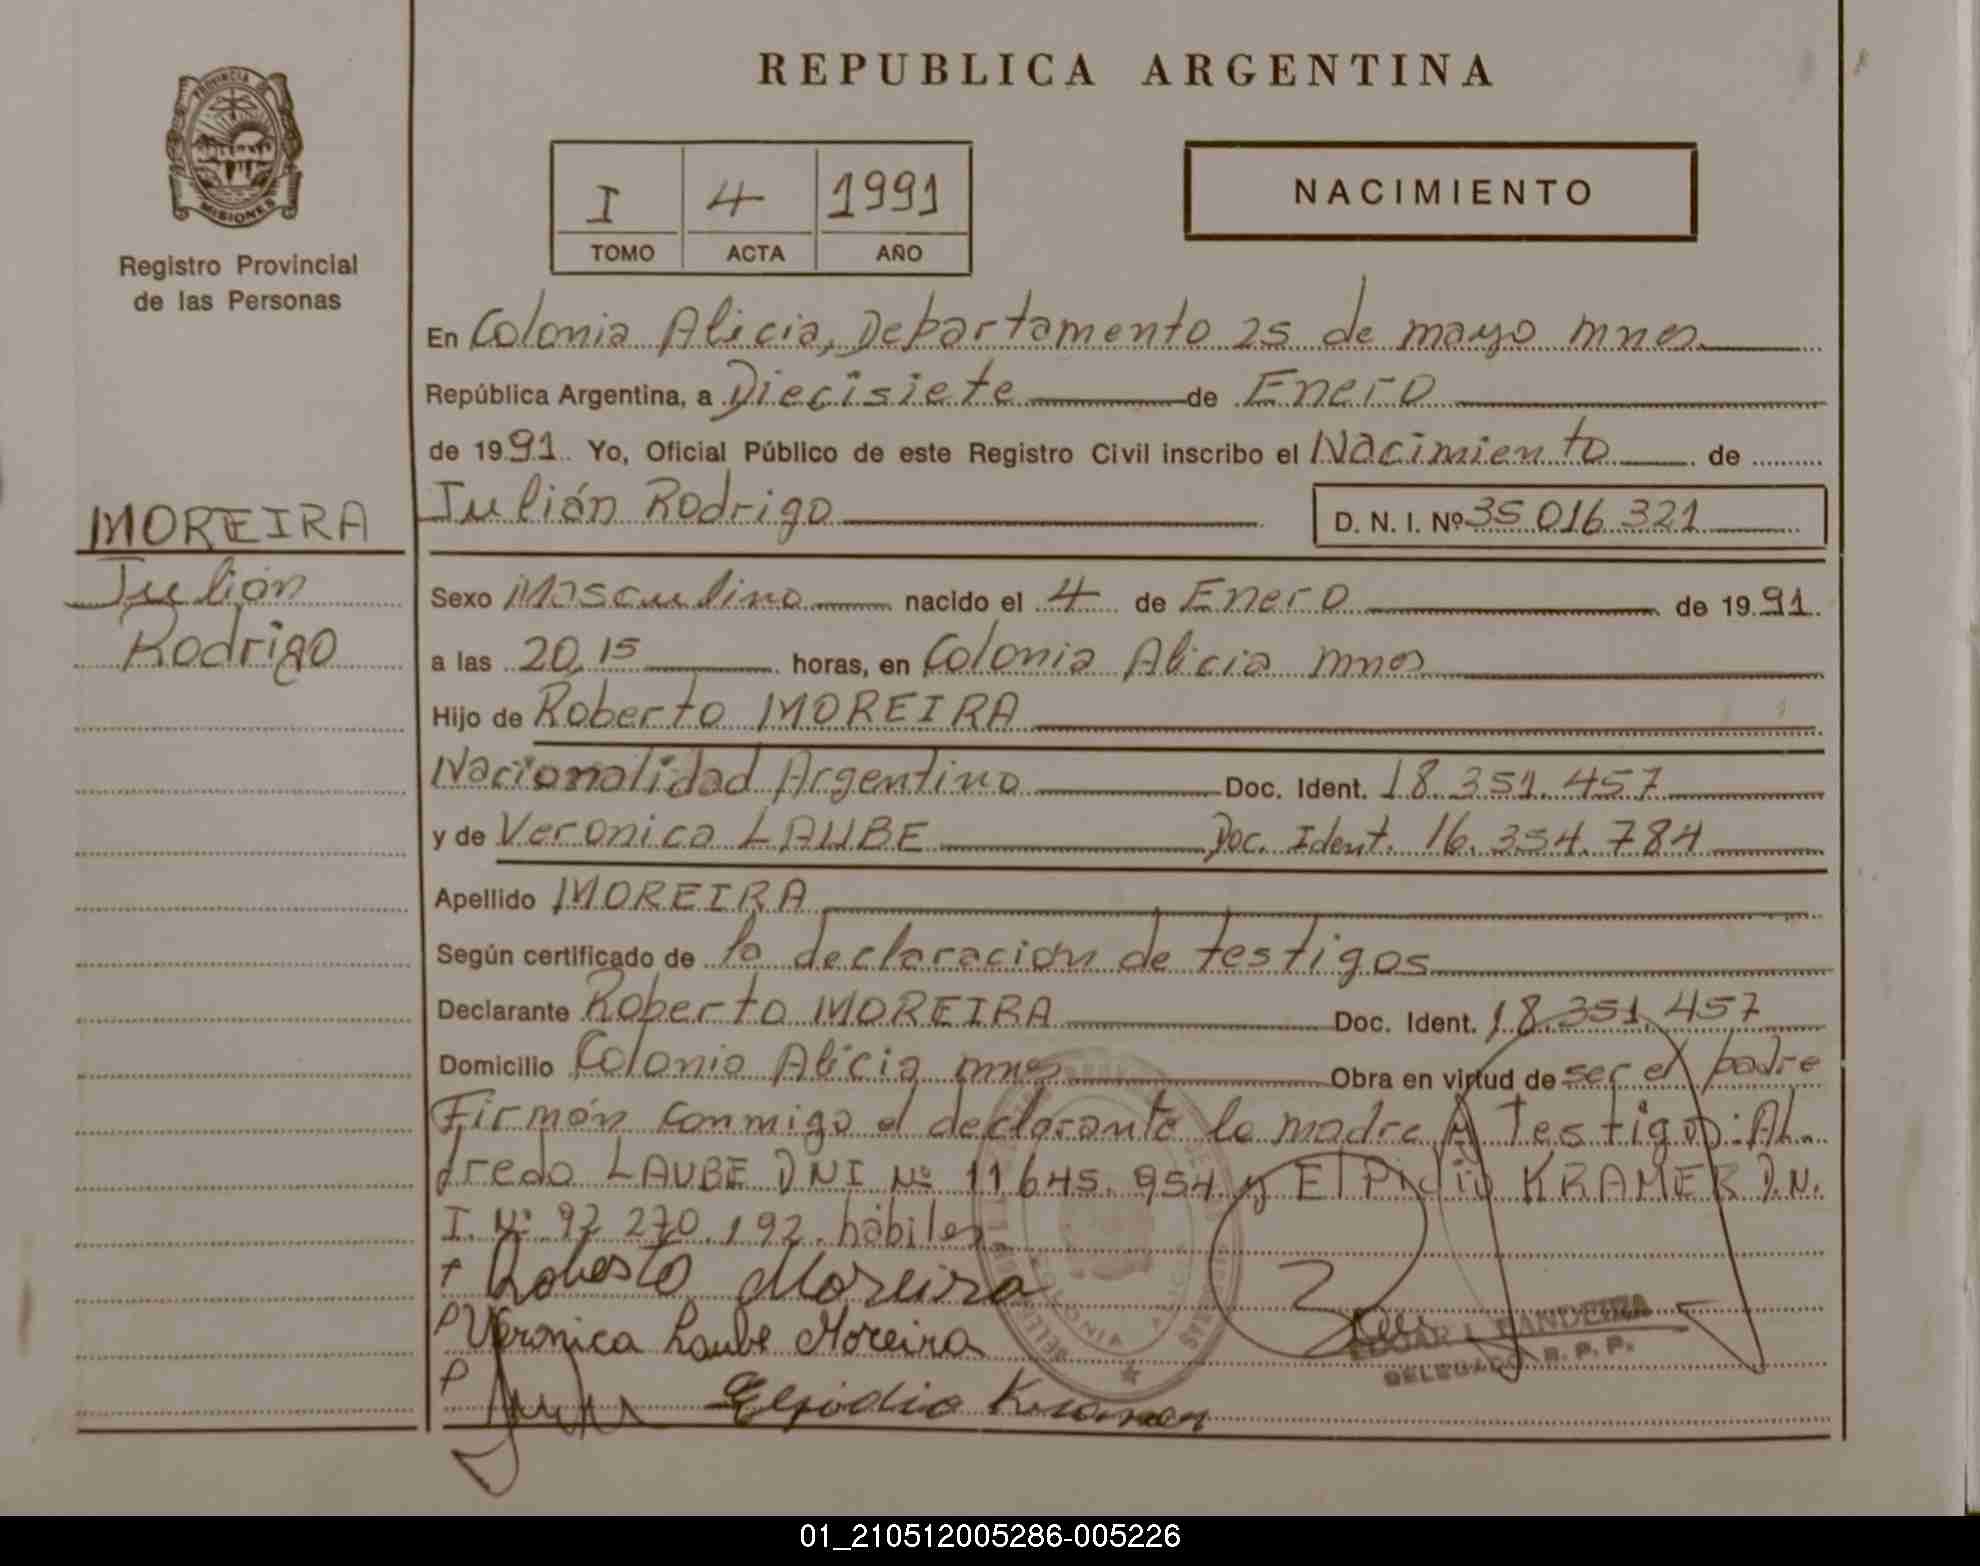 REPUBLICA ARGENTINA
PROVINCIA DE
MISIONES
Registro Provincial
de las Personas
I 4 1991
TOMO ACTA AÑO
NACIMIENTO
En Colonia Alicia, Departamento 25 de mayo mnes.
República Argentina, a Diecisiete de Enero
de 1991. Yo, Oficial Público de este Registro Civil inscribo el Nacimiento de
Julián Rodrigo D. N. I. Nº 35 016 321
MOREIRA
Julián
Rodrigo
Sexo Masculino nacido el 4 de Enero de 1991.
a las 20,15 horas, en Colonia Alicia mnes
Hijo de Roberto MOREIRA
Nacionalidad Argentino Doc. Ident. 18.351.457
y de Veronica LAUBE Doc. Ident. 16.354.784
Apellido MOREIRA
Según certificado de la declaracion de testigos
Declarante Roberto MOREIRA Doc. Ident. 18.351.457
Domicilio Colonia Alicia mnes Obra en virtud de ser el padre
Firmán conmigo el declarante la madre y Testigos: Al-
fredo LAUBE DNI Nº 11 645. 954 y ElPidio KRAMER D.N.
I. Nº 92 270.192. hábiles
Roberto Moreira
Veronica Laube Moreira
EDGAR L. BANDEIRA
DELEGADO R. P. P.
Elpidio Kramer
01_210512005286-005226